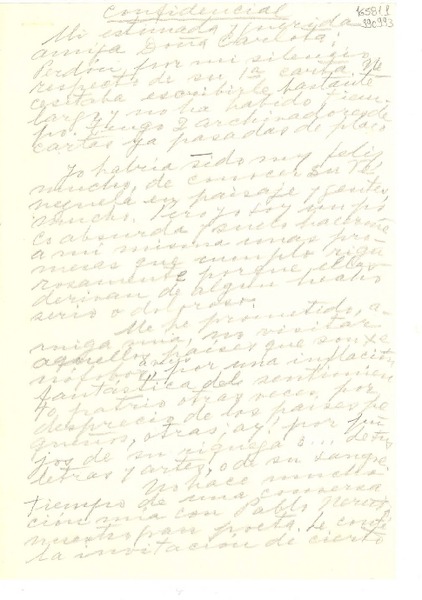 Confidencial
165811
390993
Mi estimada y querida
amiga Doña Carlota:
Perdón por mi silencio
respecto de su 1a carta. Ne
cesitaba escribirle bastante
largo y no ha habido tiem
po. Tengo 2 archivadores de
cartas ya pasadas de plazo.
Yo habría sido muy feliz,
mucho, de conocer su Ve
nezuela en paisaje y gentes,
mucho. Pero yo soy un po
co absurda y suelo hacerme
a mí misma unas pro
mesas que cumplo rigu
rosamente porque ellas
derivan de algún hecho
serio o doloroso.
Me he prometido, a-
miga mía, no visitar
aquellos países que son xe
nófobos, por una inflación
fantástica del sentimien
to patrio otras veces por
desprecio de los países pe
queños, otras, ay, por
de su riqueza o... de sus
letras y artes, o de su sangre.
No hace mucho
tiempo de una conversa
ción mía con Pablo Neruda,
nuestro gran poeta. Le conté
la invitación de cierto